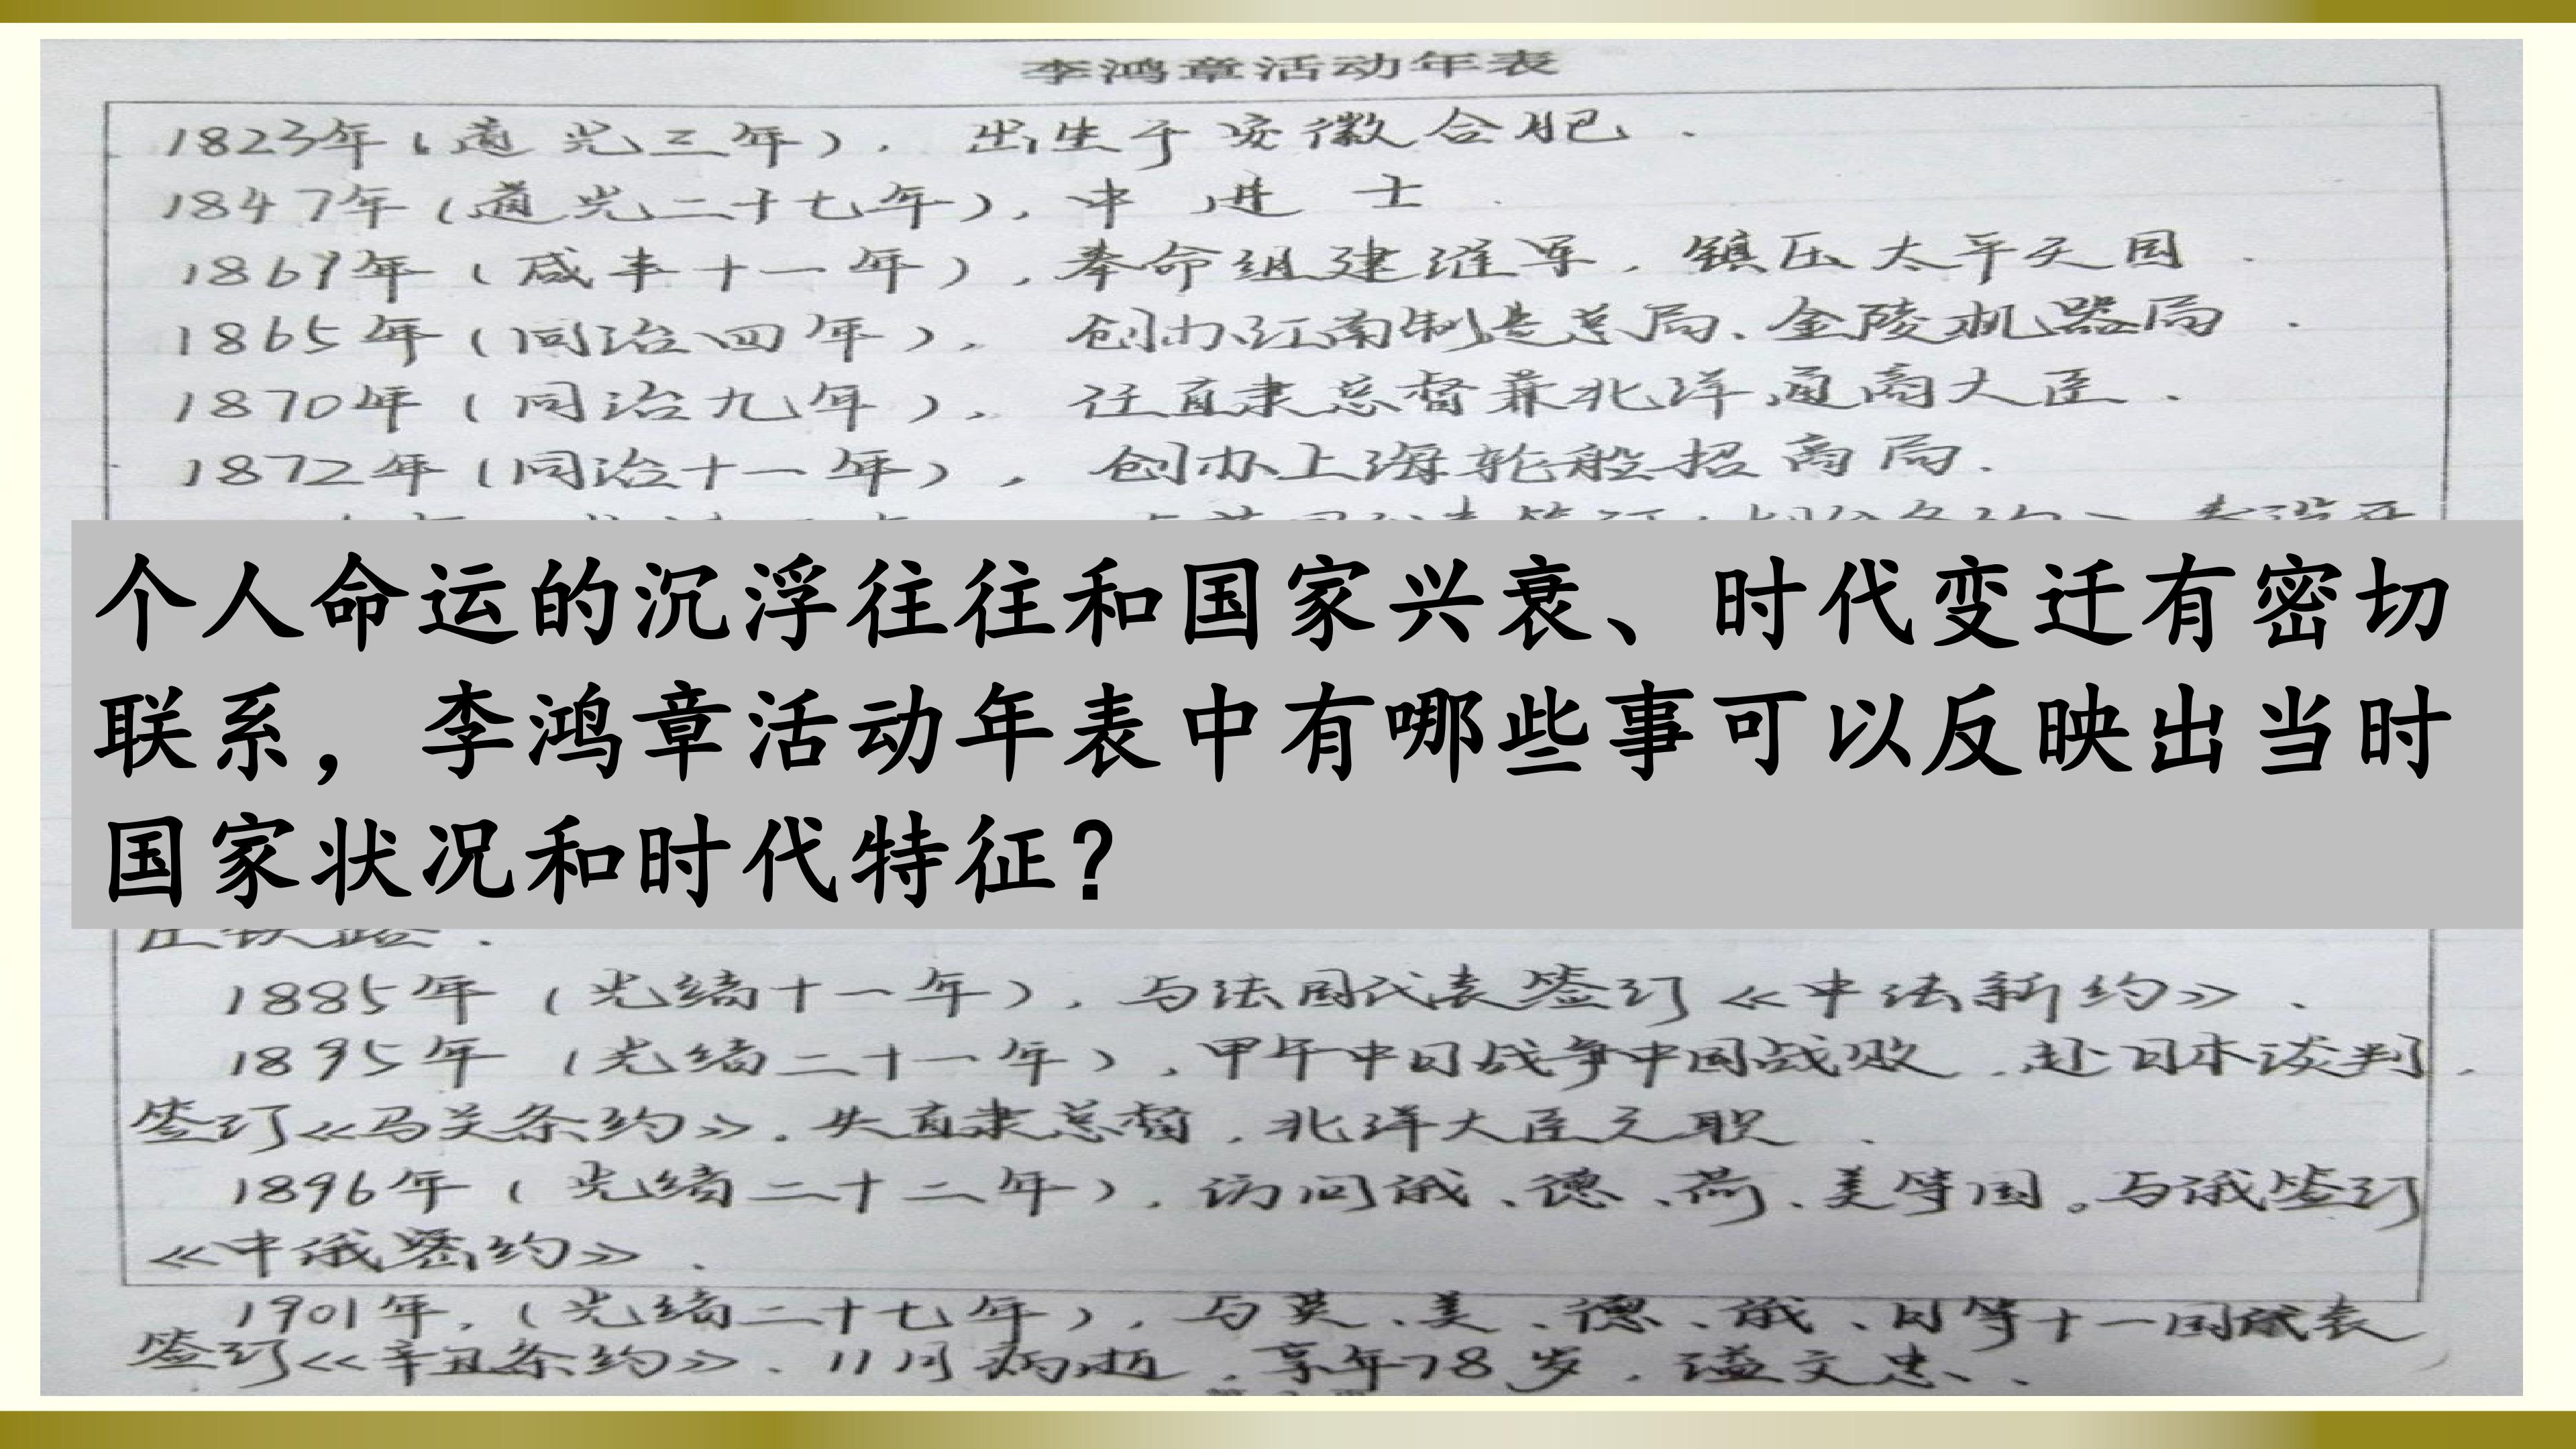 李鸿章活动年表
1823年(道光三年),出生于安徽合肥.
1847年(道光二十七年),中进士.
1861年(咸丰十一年),奉命组建淮军,镇压太平天国.
1865年(同治四年),创办江南制造总局、金陵机器局.
1870年(同治九年),任直隶总督兼北洋通商大臣.
1872年(同治十一年),创办上海轮船招商局.
个人命运的沉浮往往和国家兴衰、时代变迁有密切
联系，李鸿章活动年表中有哪些事可以反映出当时
国家状况和时代特征？
1885年(光绪十一年),与法国代表签订《中法新约》.
1895年(光绪二十一年),甲午中日战争中国战败,赴日本谈判,
签订《马关条约》。失直隶总督,北洋大臣之职.
1896年(光绪二十二年),访问俄、德、荷、美等国。与俄签订
《中俄密约》.
1901年,(光绪二十七年),与英、美、德、俄、日等十一国代表
签订《辛丑条约》、11月病逝,享年78岁,谥文忠、.